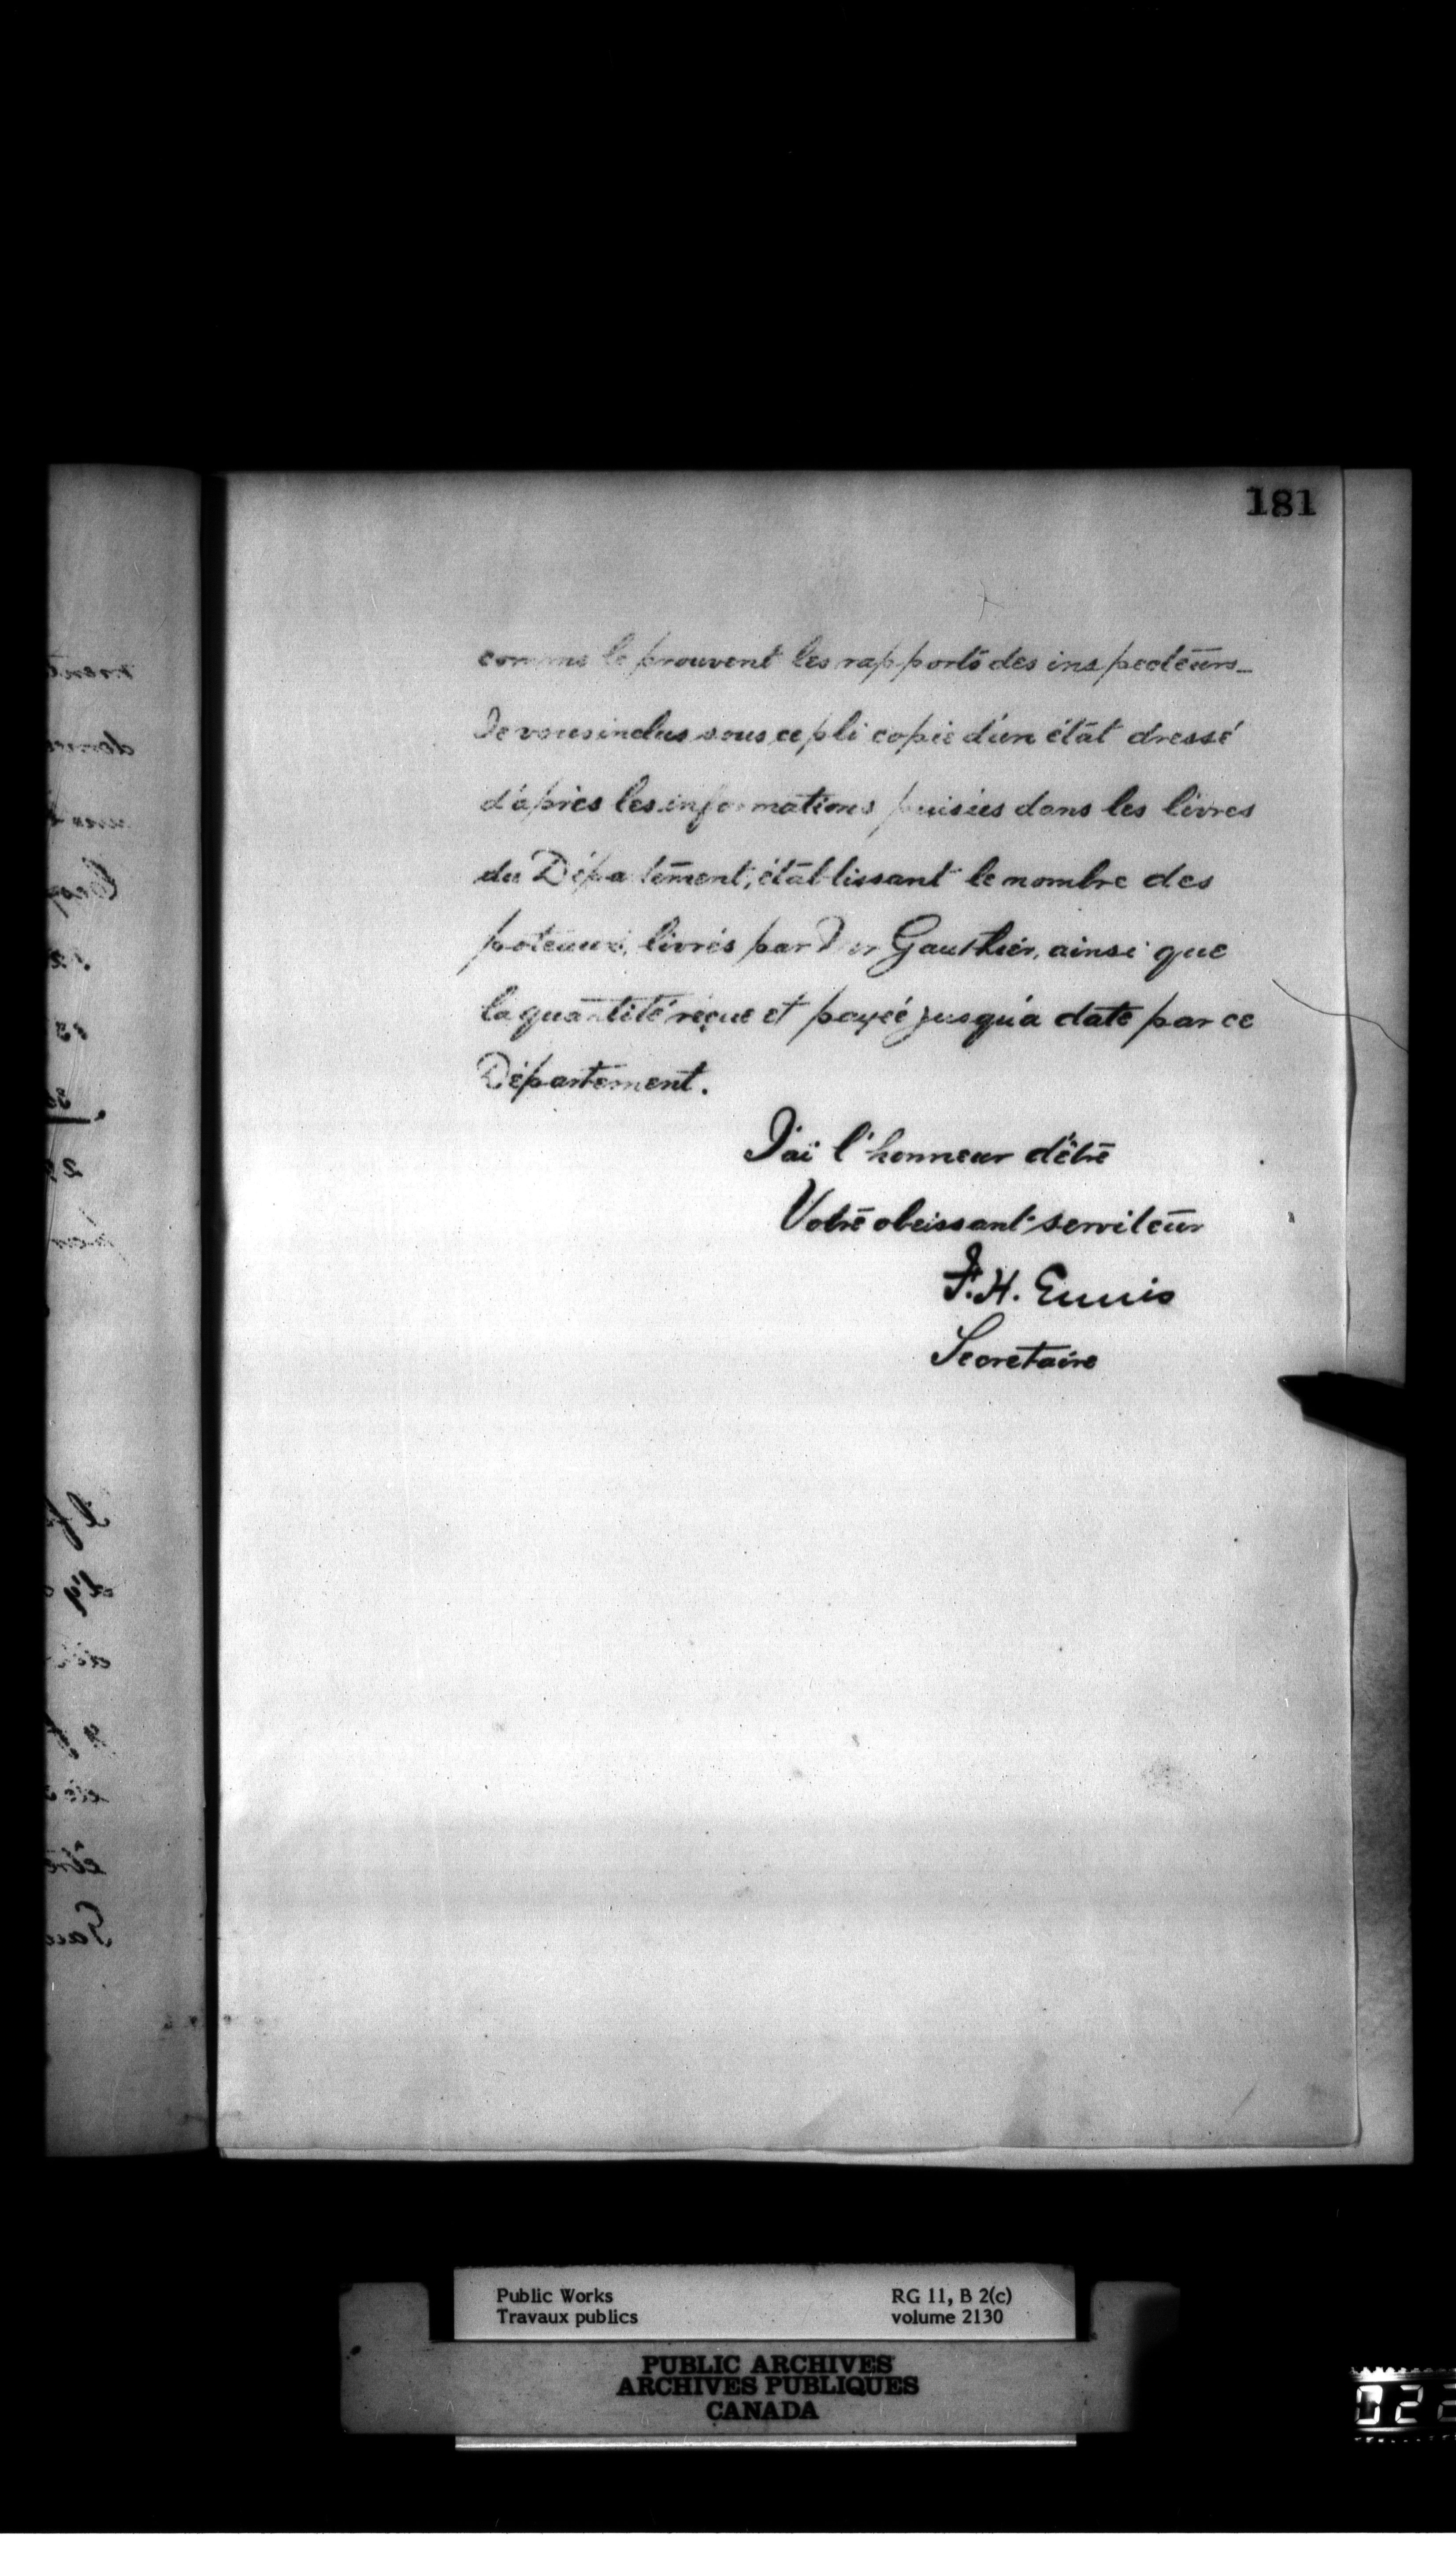 181
comme le prouvent les rapports des inspecteurs_
Je vous inclus sous ce pli copie d'un état dressé
d'après les informations puisées dans les livres
du Département, établissant le nombre des
poteaux, livrés par Gauthier, ainsi que
la quantité reçue et payée jusqu'à date par ce
Département.
J'ai l'honneur d'être
Votre obeissant serviteur
F. H. Ennis
Secretaire
Public Works
Travaux publics
RG 11, B 2(c)
volume 2130
PUBLIC ARCHIVES
ARCHIVES PUBLIQUES
CANADA
022